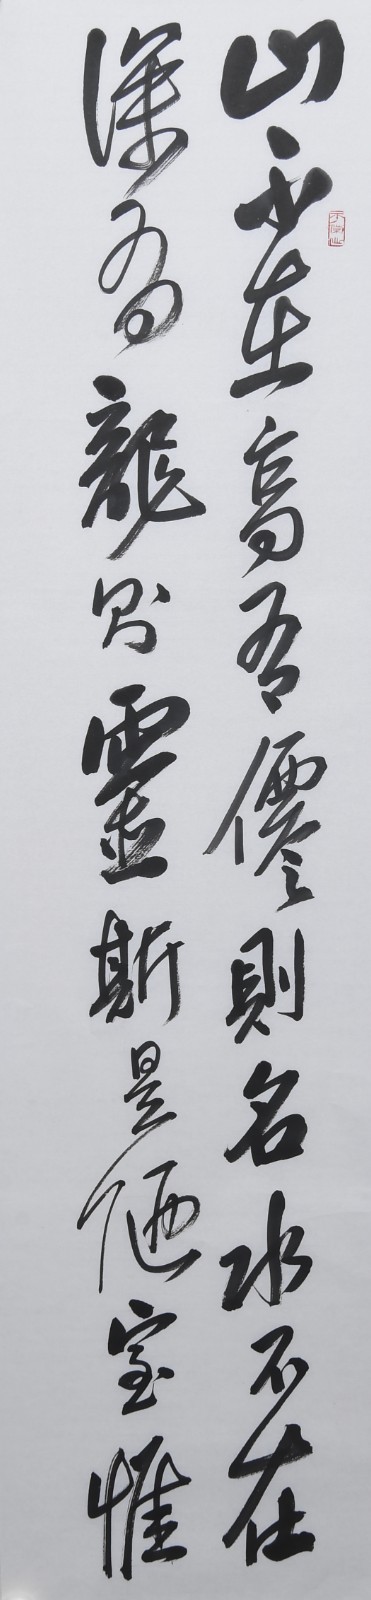 山不在高有僊則名水不在
深有龍則靈斯是陋室惟